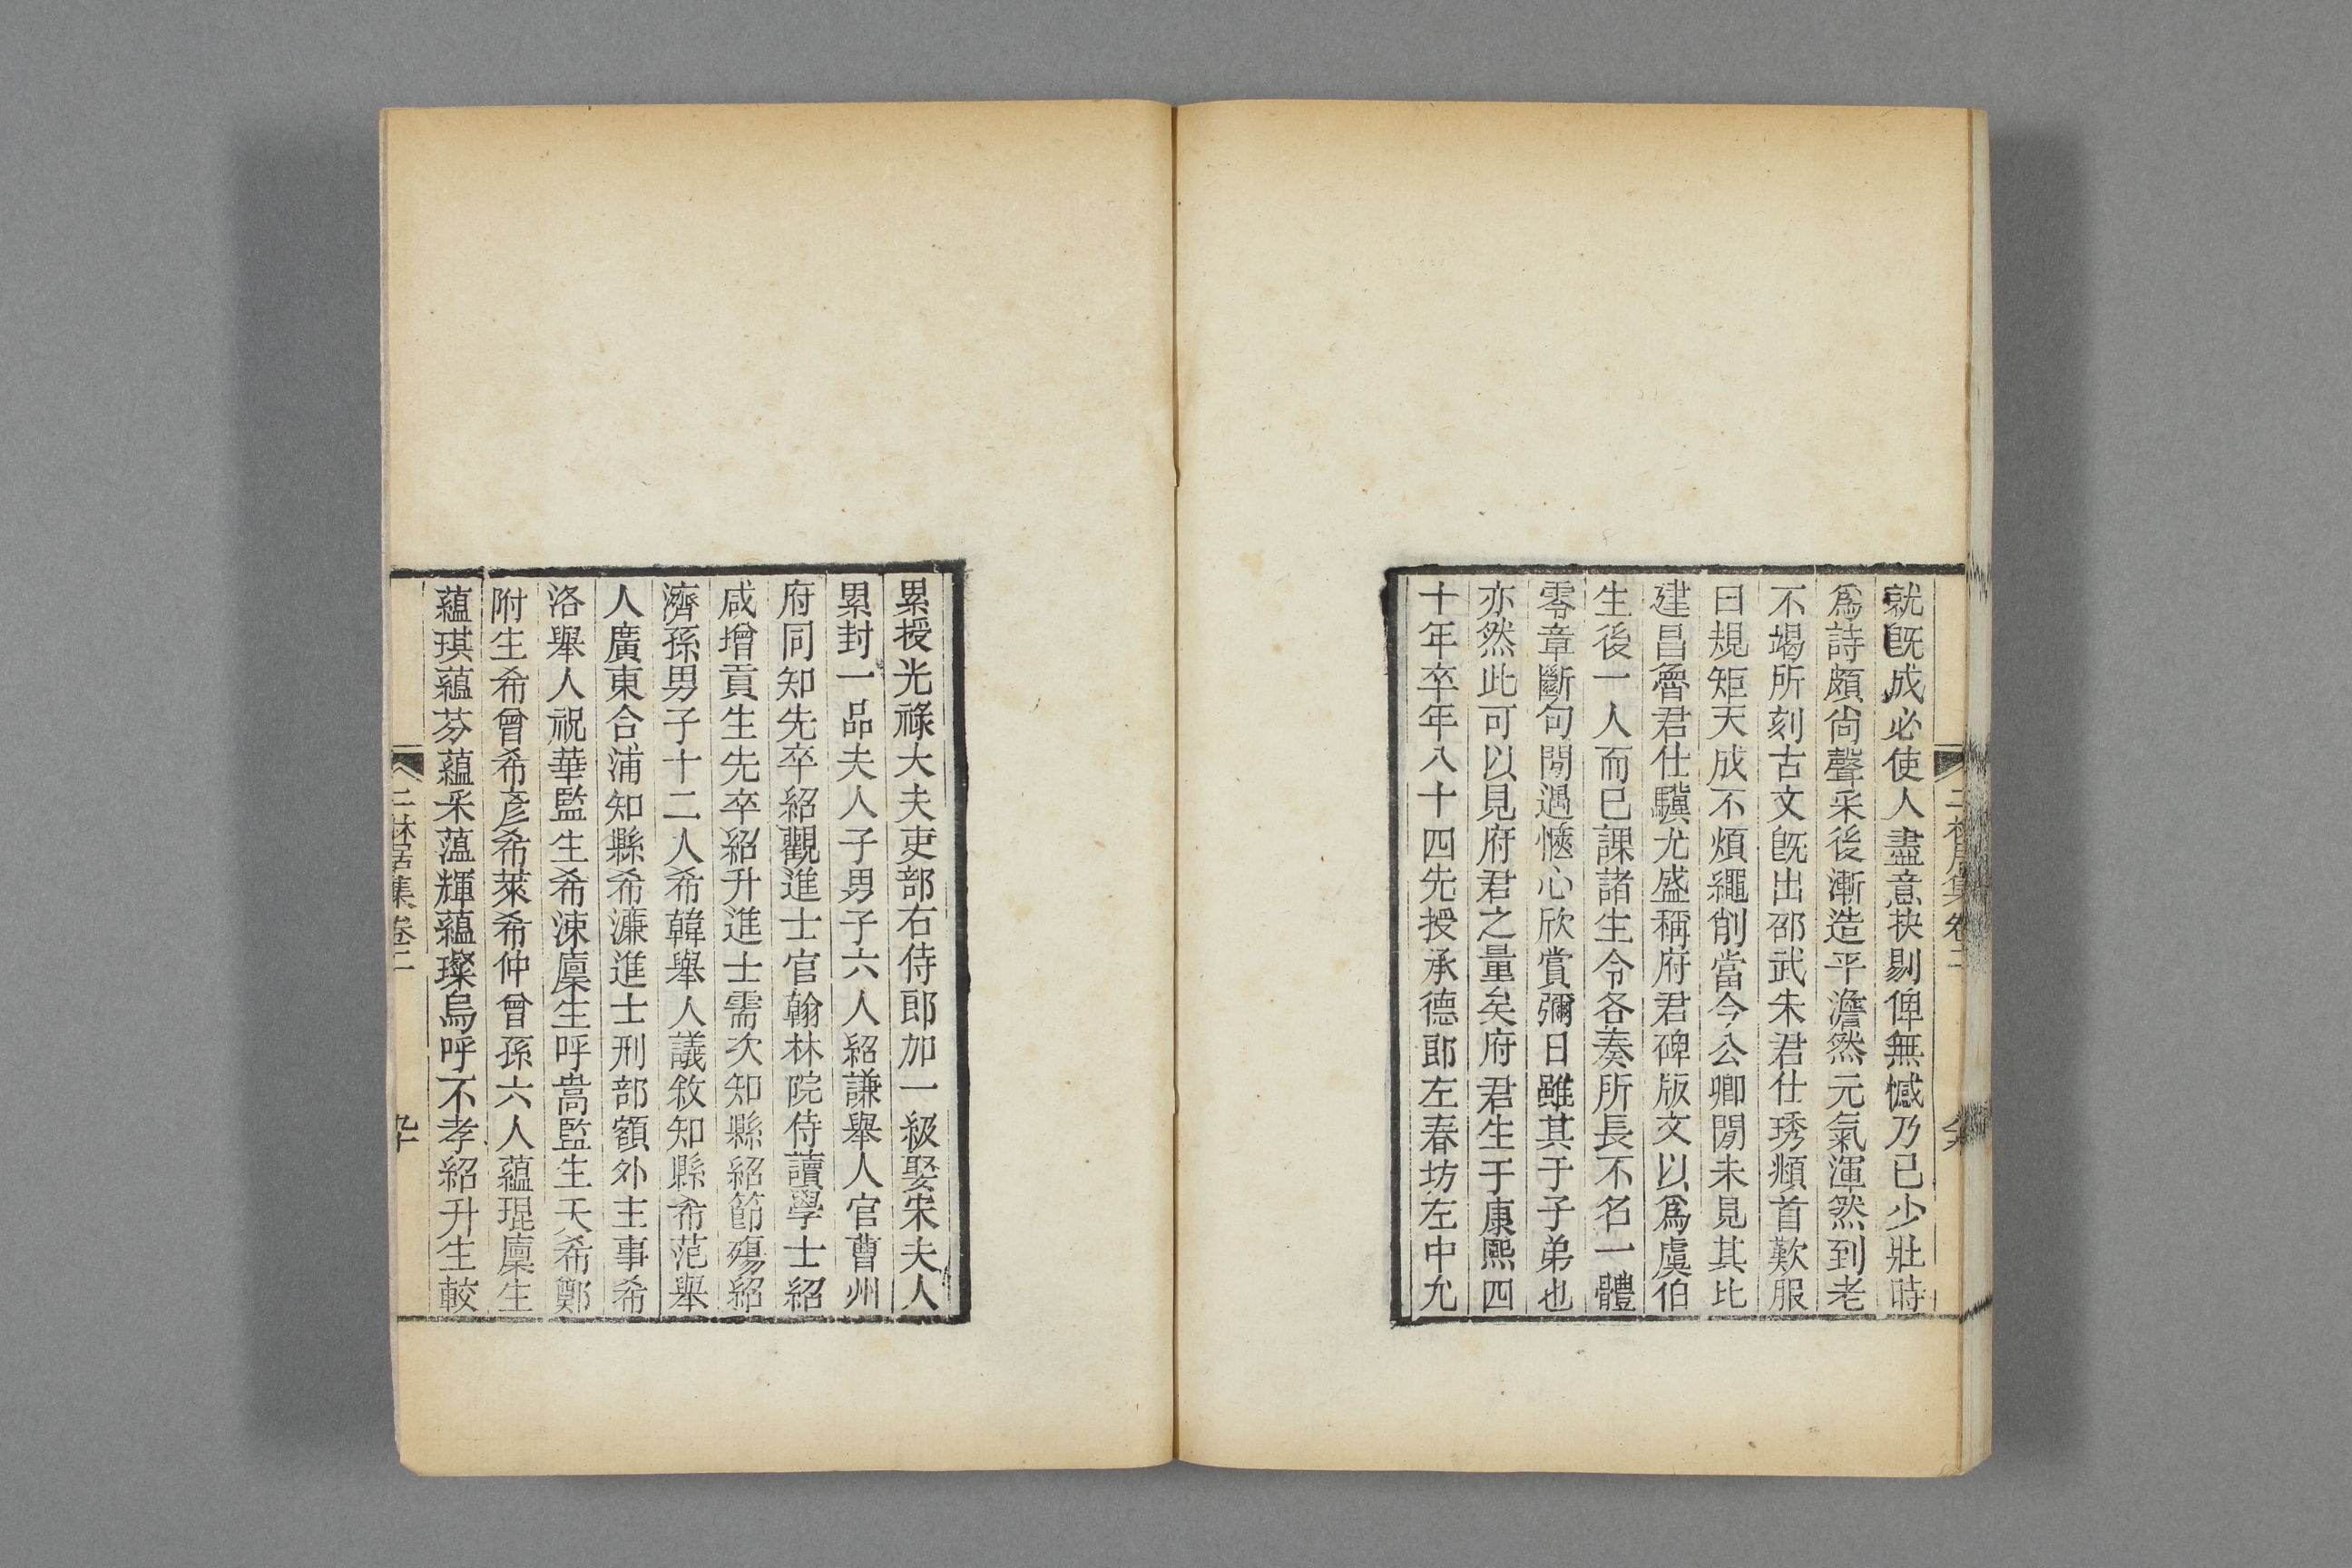 就旣成必使人盡意抉剔俾無憾乃已少壯時
爲詩頗尙聲采後漸造平澹然元氣渾然到老
不竭所刻古文旣出邵武朱君仕琇頫首歎服
曰規矩天成不煩繩削當今公卿閒未見其比
建昌魯君仕驥尤盛稱府君碑版文以爲虞伯
生後一人而已課諸生令各奏所長不名一體
零章斷句閒遇愜心欣賞彌日雖其于子弟也
亦然此可以見府君之量矣府君生于康熙四
十年卒年八十四先授承德郎左春坊左中允
累授光祿大夫吏部右侍郎加一級娶宋夫人
累封一品夫人子男子六人紹謙舉人官曹州
府同知先卒紹觀進士官翰林院侍讀學士紹
咸增貢生先卒紹升進士需次知縣紹節殤紹
濟孫男子十二人希韓舉人議敘知縣希范舉
人廣東合浦知縣希濂進士刑部額外主事希
洛舉人祝華監生希涑廩生呼嵩監生夭希鄭
附生希曾希彥希萊希仲曾孫六人蘊琨廩生
蘊琪蘊芬蘊采蕰輝蘊璨烏呼不孝紹升生較
二林居集卷二